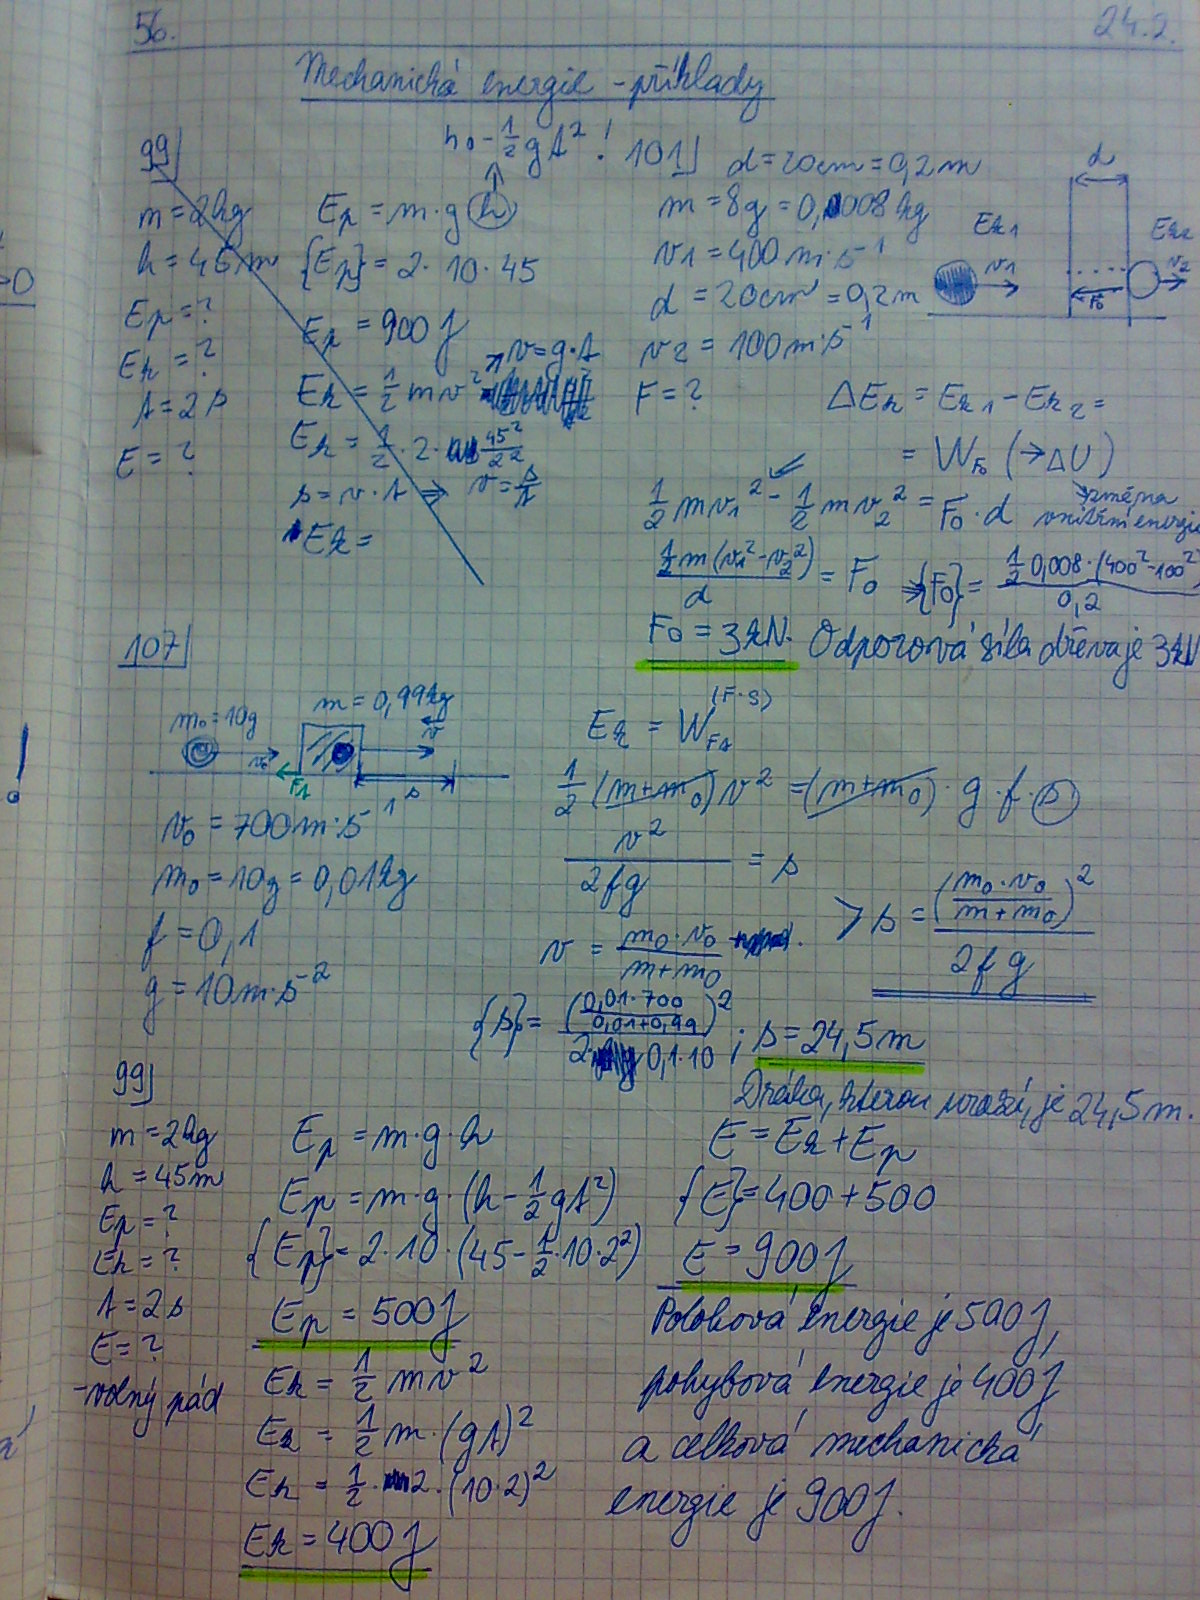 56.
24.2.
Mechanická energie - příklady
99)
h₀ - 1/2 gt² !
m = 2kg
h = 45m
Ep = ?
Ek = ?
t = 2s
E = ?
Ep = m·g·h
{Ep} = 2·10·45
Ep = 900J
v = g·t
Ek = 1/2 mv²
Ek = 1/2·2· 45²/2²
s = v·t ⇒ v = s/t
Ek =
101)
d = 20cm = 0,2m
m = 8g = 0,008kg
v1 = 400m·s⁻¹
d = 20cm = 0,2m
v2 = 100m·s⁻¹
F = ?
d
Ek1
v1
F₀
Ek2
v2
ΔEk = Ek1 - Ek2 =
= W_F₀ (→ΔU)
změna
vnitřní energie
1/2 mv₁² - 1/2 mv₂² = F₀·d
1/2 m(v₁² - v₂²) / d = F₀ ⇒ {F₀} = 1/2 0,008·(400² - 100²) / 0,2
F₀ = 3kN. Odporová síla dřeva je 3kN
107)
m₀ = 10g
m = 0,99kg
v
v₀
Ft
s
v₀ = 700m·s⁻¹
m₀ = 10g = 0,01kg
f = 0,1
g = 10m·s⁻²
(F·s)
Ek = W_Ft
1/2 (m+m₀)v² = (m+m₀)·g·f·s
v² / 2fg = s
v = m₀·v₀ / m+m₀
> s = (m₀·v₀ / m+m₀)² / 2fg
{s} = (0,01·700 / 0,01+0,99)² / 2·0,1·10 ; s = 24,5m
Dráha, kterou urazí, je 24,5m.
99)
m = 2kg
h = 45m
Ep = ?
Ek = ?
t = 2s
E = ?
- volný pád
Ep = m·g·h
Ep = m·g·(h - 1/2 gt²)
{Ep} = 2·10·(45 - 1/2·10·2²)
Ep = 500J
Ek = 1/2 mv²
Ek = 1/2 m·(gt)²
Ek = 1/2·2·(10·2)²
Ek = 400J
E = Ek + Ep
{E} = 400 + 500
E = 900J
Polohová energie je 500J,
pohybová energie je 400J
a celková mechanická
energie je 900J.
!